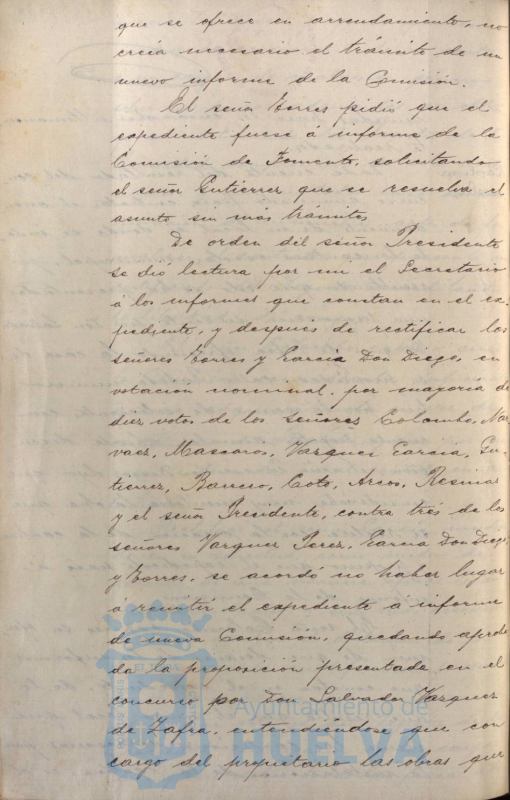 que se ofrece en arrendamiento, no
creía necesario el trámite de un
nuevo informe de la Comisión.
El señor Torres pidió que el
expediente fuese á informe de la
Comisión de Fomento, solicitando
el señor Gutierrez que se resuelva el
asunto sin más trámites
De orden del señor Presidente
se dió lectura por mi el Secretario
á los informes que constan en el ex-
pediente, y después de rectificar los
señores Torres y Garcia Don Diego, en
votación nominal, por mayoría de
diez votos de los señores Colombo, Nar-
vaez, Mascaros, Vazquez Garcia, Gu-
tierrez, Barrero, Coto, Arcos,
y el señor Presidente, contra tres de los
señores Vazquez Perez, Garcia Don Diego,
y Torres, se acordó no haber lugar
á remitir el expediente a informe
de nueva Comisión, quedando aproba
da la proposición presentada en el
concurso por Don Salvador Vazquez
de Zafra, entendiéndose que con
cargo del propietario las obras que
Ayuntamiento de
HUELVA